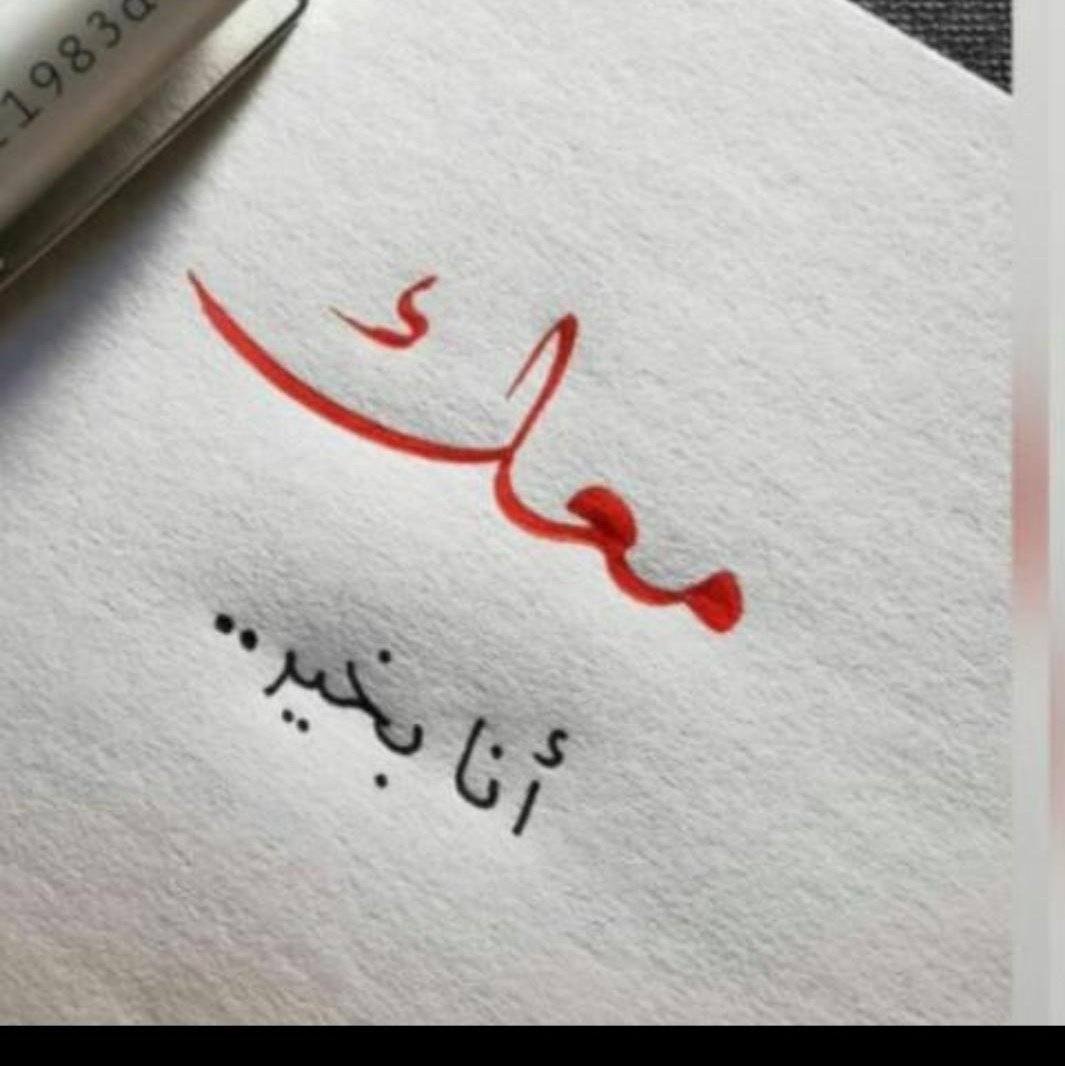 1983d
معك
أنا بخير..